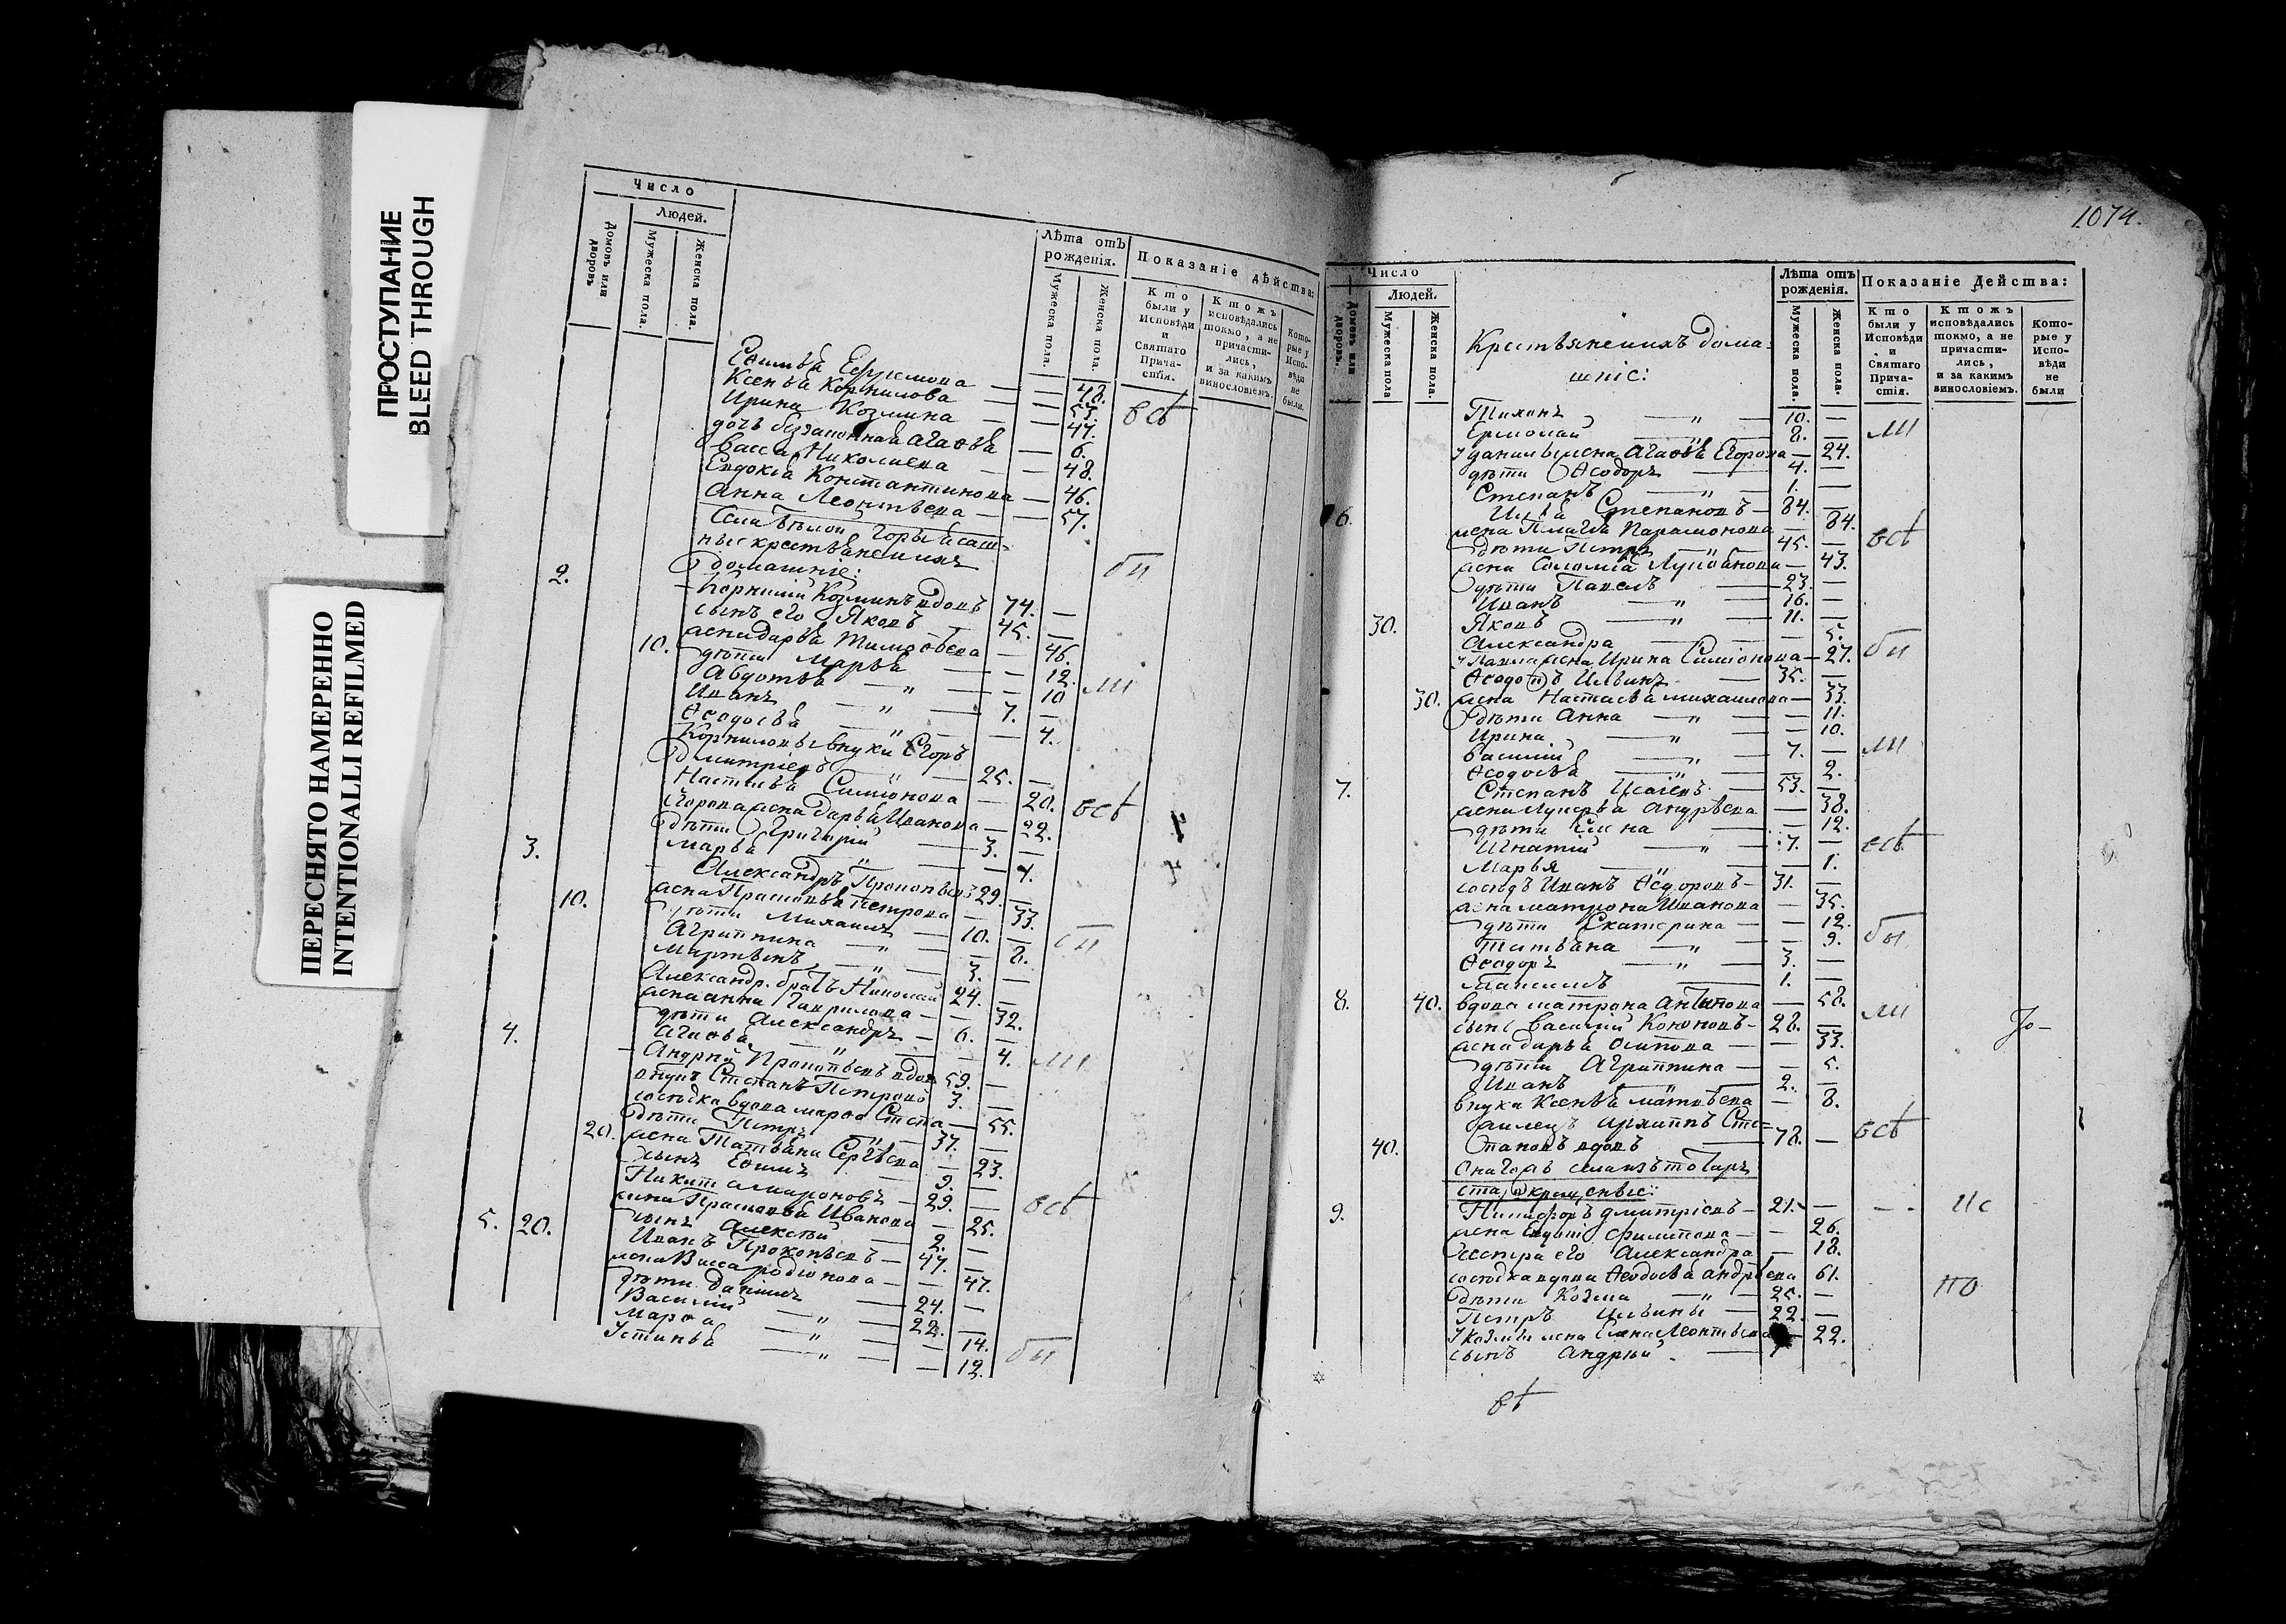 ПРОСТУПАНИЕ
BLEED THROUGH
ПЕРЕСНЯТО НАМЕРЕННО
INTENTIONALLI REFILMED
Число
Людей.
Домовъ или дворовъ
Мужеска пола.
Женска пола.
Лѣта отъ рожденія.
Мужеска пола.
Женска пола.
Показаніе дѣйства:
Кто были у Исповѣди и Святаго Причастія.
Ктожъ исповѣдались токмо, а не причастились, и за какимъ винословіемъ.
Которые у Исповѣди не были.
Ефремова — — 48.
Ксенья Корнилова — — 53.
Ирина Козмина — — 47.
дочь Агафья — 6.
Васса Николаева — — 48.
Евдокія Константинова — 46.
Анна Леонтьева — — 57.
Села Бѣлой Горы
домашніе:
2. Корнилій Козминъ вдовъ 74. —
сынъ его Яковъ — 45. —
жена Дарья Тимоѳѣева — 46.
10. дѣти Марья — — 12.
Авдотья — „ — — 10
Иванъ — „ — 7. —
Ѳеодосья — „ — — 4.
Корниловы внуки Егоръ
Дмитріевъ — 25. —
Настасья Симіонова — 20.
Егорова жена Дарья Иванова — 22.
дѣти Григорій — 3. —
Марья — „ — 1.
3. Александръ Прокопьевъ 29. —
жена Прасковья Петрова — 33.
10. дѣти Михаилъ — 10. —
Агриппина — „ — — 8.
Мартынъ — „ — 3. —
Александр. братъ Николай 24. —
жена Анна Гаврилова — — 32.
дѣти Александръ — 6. —
Агафья — „ — — 4.
4. Андрей Прокопьевъ вдов 59. —
внукъ Степанъ Петровъ 3. —
сосѣдка вдова Марфа Степа — 55.
дѣти Петръ — „ — 37. —
20. жена Татьяна Сергѣева — 23.
сынъ Ефимъ — 9. —
Никита Мироновъ — 29. —
жена Прасковья Иванова — 25.
сынъ Алексѣй — 2. —
5. 20. Иванъ Прокопьевъ — 47. —
жена Васса Родіонова — — 47.
дѣти Данилъ — 24. —
Василій — „ — 22. —
Марфа — „ — — 14.
Устинья — „ — — 12.
всѣ
бы
ли
всѣ
бы
ли
всѣ
бы
1074.
Число
Людей.
Домовъ или дворовъ.
Мужеска пола
Женска пола.
Крестьянскихъ дома-
шніе:
Лѣта отъ рожденія.
Мужеска пола.
Женска пола.
Показаніе Действа:
Кто были у Исповѣди и Святаго Причастія.
Ктожъ исповѣдались токмо, а не причастились, и за какимъ винословіемъ.
Которые у Исповѣди не были
Тихонъ — „ — 10. —
Ермолай — „ — 8. —
У Данилы жена Агафья Егорова — 24.
дѣти Ѳеодоръ — 4. —
Степанъ — „ — 1. —
6. Илья Степановъ — 84. —
жена Пелагея Парамонова — 84.
дѣти Петръ — „ — 45. —
жена Соломія — 43.
дѣти Павелъ — 23. —
Иванъ — „ — 16. —
30. Яковъ — „ — 11. —
Александра — — 5.
У Павла жена Ирина Симіонова — 27.
Ильинъ — 35. —
30. жена Настасья Михаилова — 33.
дѣти Анна — „ — — 11.
Ирина — „ — — 10.
Василій — „ — 7. —
Ѳеодосья — „ — — 2.
7. Степанъ Исаевъ — 53. —
жена Лукерья Андрѣева — 38.
дѣти Елена — — 12.
Игнатій — „ — 7. —
Марья — „ — — 1.
сосѣдъ Иванъ Ѳеодоровъ — 31. —
жена Матрона Иванова — 35.
дѣти Екатерина — — 12.
Татьяна — „ — — 9.
Ѳеодоръ — „ — 3. —
Максимъ — 1. —
8. 40. вдова Матрона Антипова — 58.
сынъ Василій Кононовъ — 28. —
жена Дарья Осипова — — 33.
дѣти Агриппина — — 5.
Иванъ — „ — 2. —
внука Ксенья Матвѣева — 8.
Архиппъ Сте-
40. пановъ вдовъ — 78. —
9. Никифоръ Дмитріевъ — 21. —
жена Филипова — — 26.
сестра его Александра — 18.
сосѣдка вдова Ѳеодосья Андрѣева 61.
дѣти Козма — „ — 25. —
Петръ Ильины — 22. —
У Козмы жена Елена Леонтьева — 22.
сынъ Андрей — 1 —
ли
всѣ
бы
ли
всѣ
бы
ли
всѣ
Ис
по
вѣ